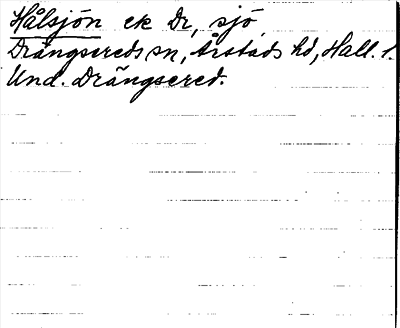 Hålsjön ek Dr, sjö
Drängsereds sn, Årstads hd, Hall. l.
Und. Drängsered.